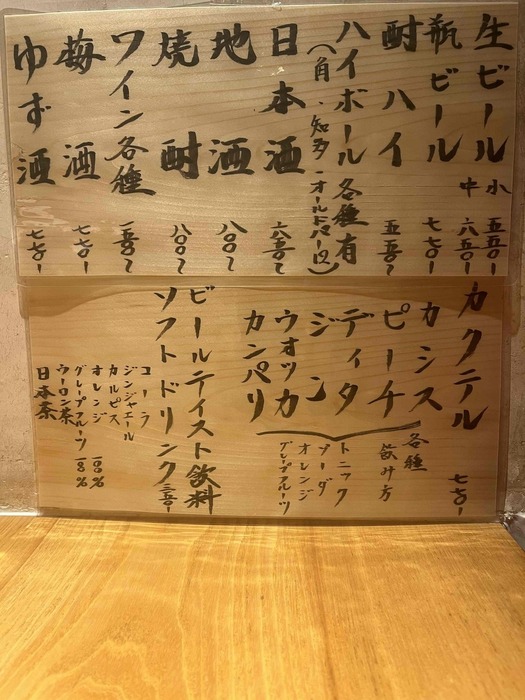 生ビール 小 五五〇ー
中 六五〇ー
瓶ビール 七七〇ー
酎ハイ 五五〇〜
ハイボール各種有
(角・知多・オールドパー12)
日本酒 六五〇〜
地酒 八〇〇〜
焼酎 八〇〇〜
ワイン各種 一五〇〜
梅酒 七七〇ー
ゆず酒 七七〇ー
カクテル 七七〇ー
カシス
ピーチ
ディタ
ジン
ウオッカ
カンパリ
各種
飲み方
トニック
ソーダ
オレンジ
グレープフルーツ
ビールテイスト飲料
ソフトドリンク 三五〇ー
コーラ
ジンジャエール
カルピス
オレンジ 100%
グレープフルーツ 100%
ウーロン茶
日本茶